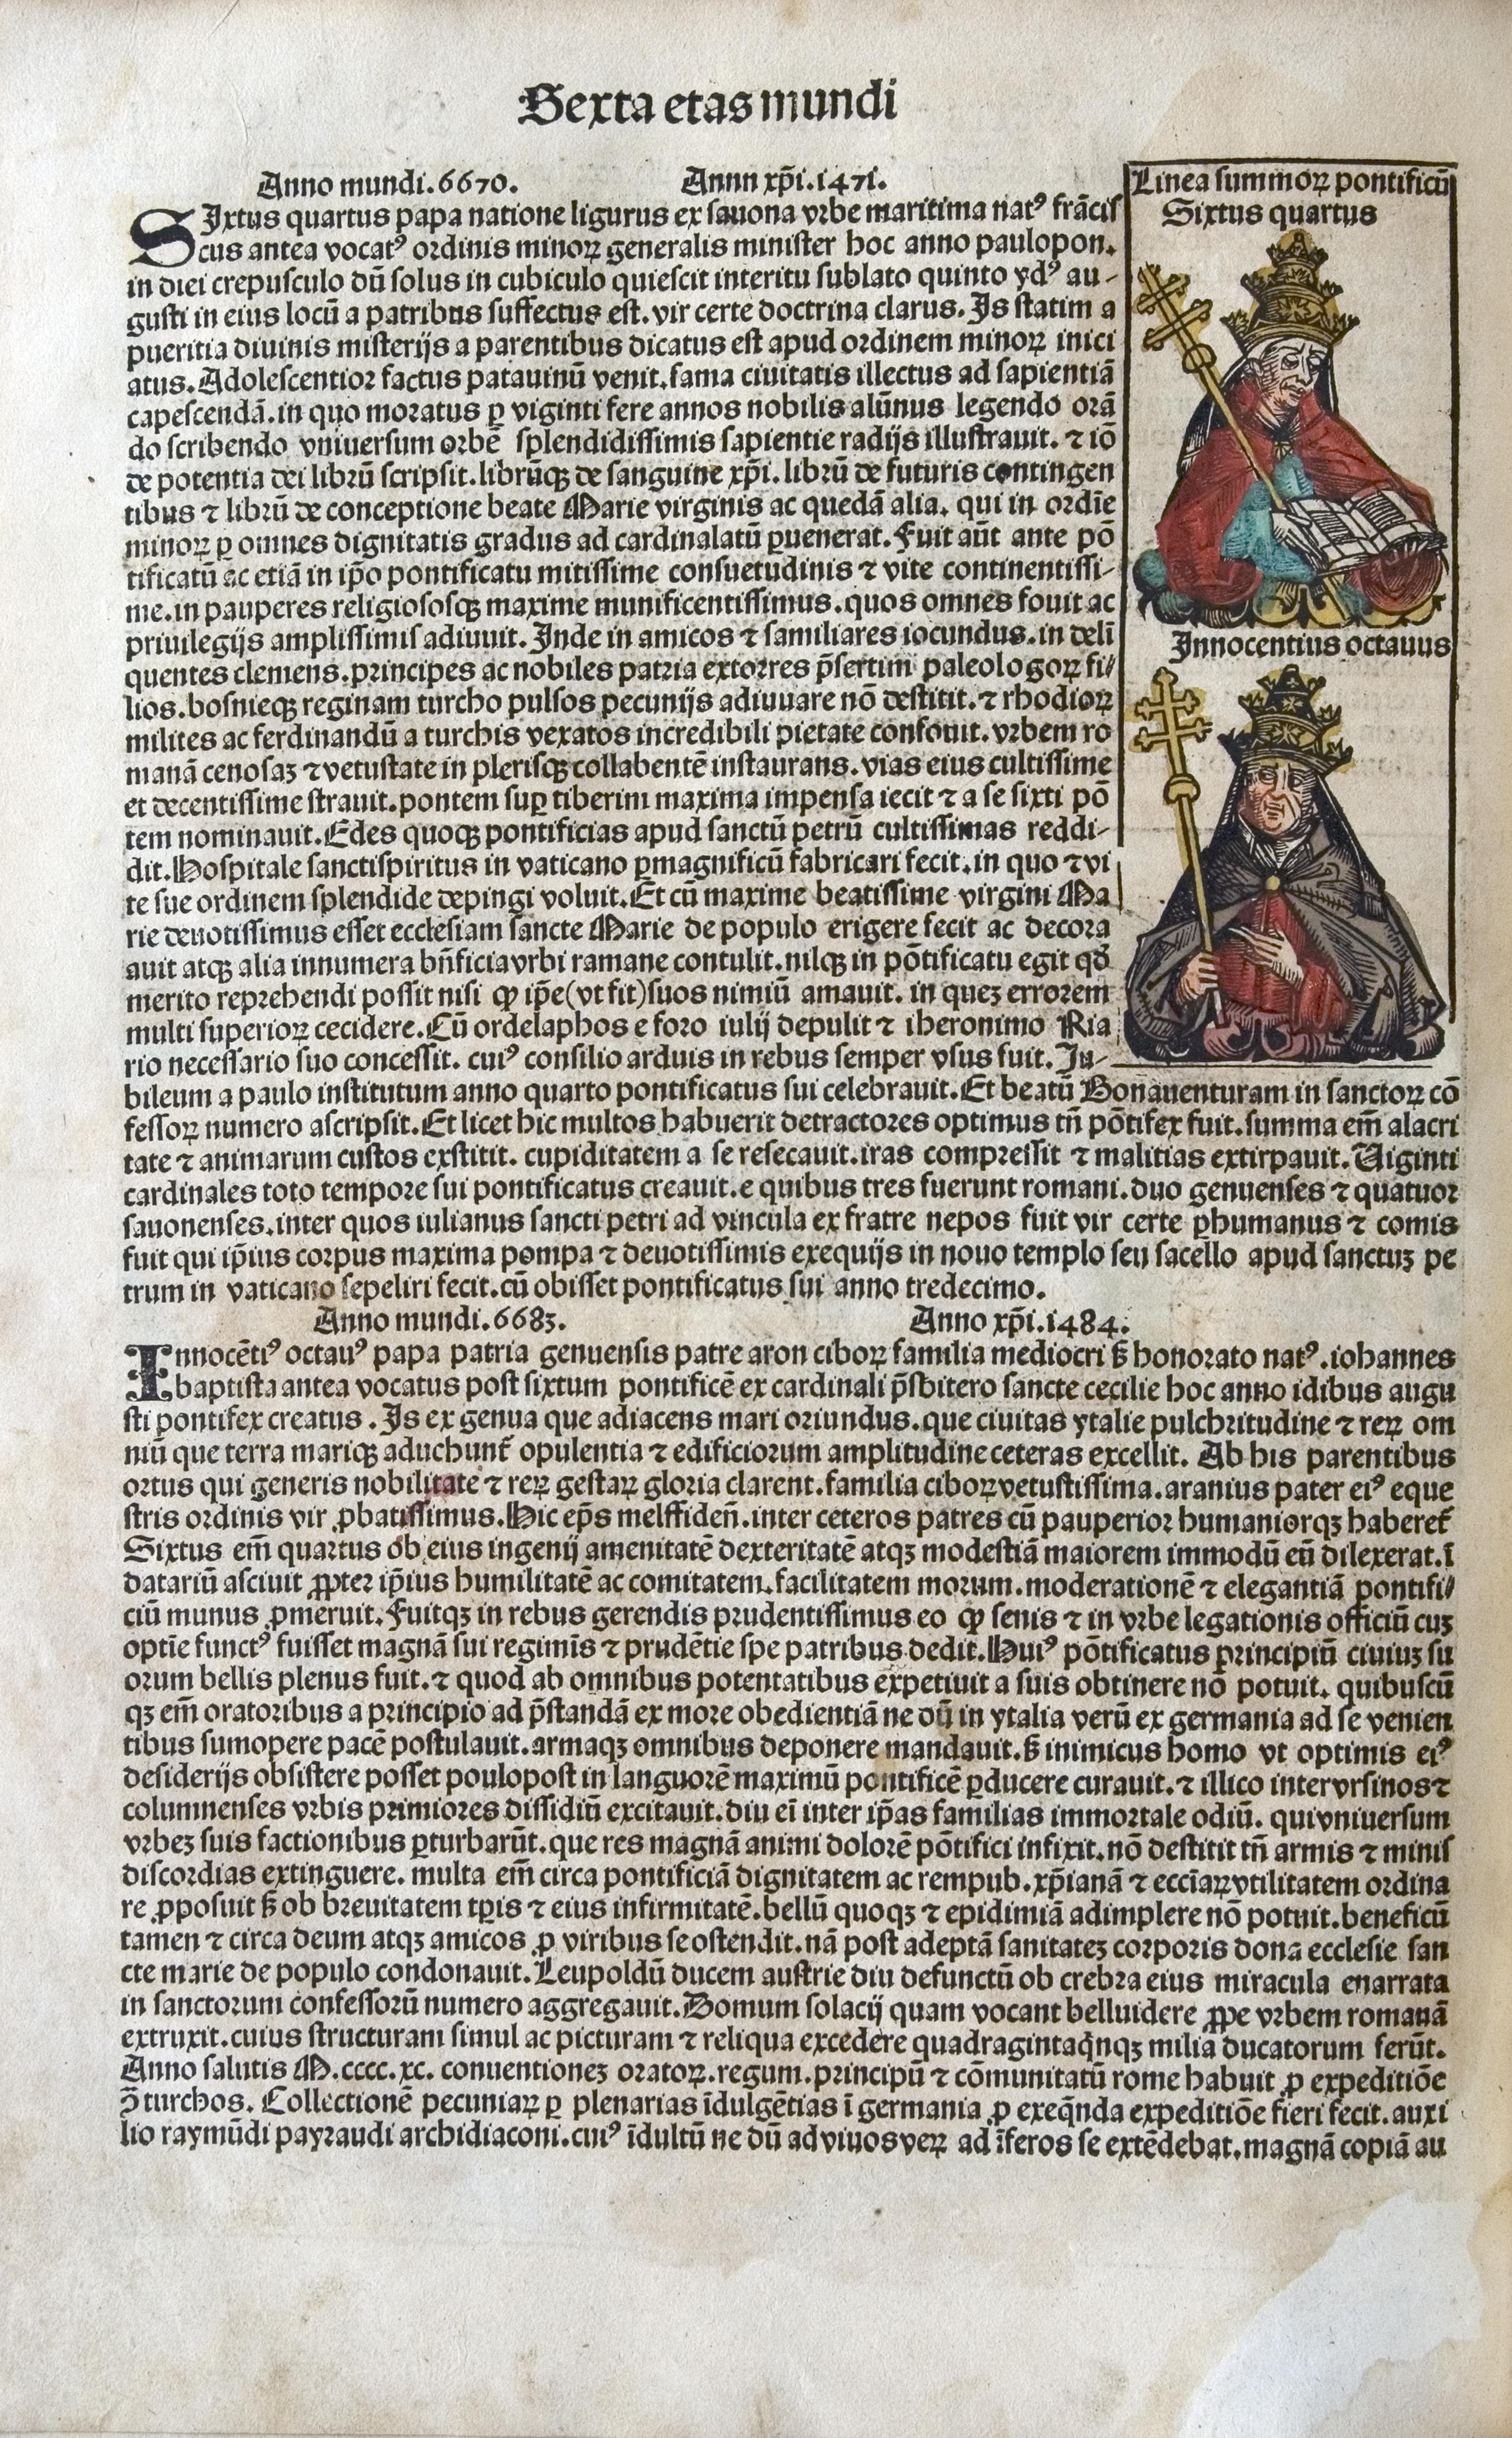 Sexta etas mundi
Anno mundi.6670. Annn xp̃i.1471.
Linea summoꝝ pontificũ
Sixtus quartus
SIxtus quartus papa natione ligurus ex sauona vrbe maritima natꝰ frãcis
cus antea vocatꝰ ordinis minoꝝ generalis minister hoc anno paulopon.
in diei crepusculo dũ solus in cubiculo quiescit interitu sublato quinto ydꝰ au-
gusti in eius locũ a patribus suffectus est. vir certe doctrina clarus. Is statim a
pueritia diuinis misterijs a parentibus dicatus est apud ordinem minoꝝ inici
atus. Adolescentior factus patauinũ venit. fama ciuitatis illectus ad sapientiã
capescendã. in quo moratus ꝑ viginti fere annos nobilis alũnus legendo orã
do scribendo vniuersum orbẽ splendidissimis sapientie radijs illustrauit. ⁊ iõ
de potentia dei librũ scripsit. librũqꝫ de sanguine xp̃i. librũ de futuris contingen
tibus ⁊ librũ de conceptione beate Marie virginis ac quedã alia. qui in ordĩe
minoꝝ ꝑ omnes dignitatis gradus ad cardinalatũ ꝑuenerat. Fuit aũt ante põ
tificatũ ac etiã in ip̃o pontificatu mitissime consuetudinis ⁊ vite continentissi-
me. in pauperes religiososqꝫ maxime munificentissimus. quos omnes fouit ac
priuilegijs amplissimis adiuuit. Inde in amicos ⁊ familiares iocundus. in delĩ
quentes clemens. principes ac nobiles patria extorres p̃sertim paleologoꝝ fi/
lios. bosnieqꝫ reginam turcho pulsos pecunijs adiuuare nõ destitit. ⁊ rhodioꝝ
milites ac ferdinandũ a turchis vexatos incredibili pietate confouit. vrbem ro
manã cenosaꝫ ⁊ vetustate in plerisqꝫ collabentẽ instaurans. vias eius cultissime
et decentissime strauit. pontem suꝑ tiberim maxima impensa iecit ⁊ a se sixti põ
tem nominauit. Edes quoqꝫ pontificias apud sanctũ petrũ cultissimas reddi-
dit. Hospitale sanctispiritus in vaticano ꝑmagnificũ fabricari fecit. in quo ⁊ vi
te sue ordinem splendide depingi voluit. Et cũ maxime beatissime virgini Ma
rie deuotissimus esset ecclesiam sancte Marie de populo erigere fecit ac decora
auit atqꝫ alia innumera bñficia vrbi ramane contulit. nilqꝫ in põtificatu egit qđ
merito reprehendi possit nisi ꝙ ip̃e (vt fit) suos nimiũ amauit. in queꝫ errorem
multi superioꝝ cecidere. Cũ ordelaphos e foro iulij depulit ⁊ iheronimo Ria
rio necessario suo concessit. cuiꝰ consilio arduis in rebus semper vsus fuit. Iu-
Innocentius octauus
bileum a paulo institutum anno quarto pontificatus sui celebrauit. Et beatũ Bonauenturam in sanctoꝝ cõ
fessoꝝ numero ascripsit. Et licet hic multos habuerit detractores optimus tñ põtifex fuit. summa em̃ alacri
tate ⁊ animarum custos exstitit. cupiditatem a se resecauit. iras compressit ⁊ malitias extirpauit. Uiginti
cardinales toto tempore sui pontificatus creauit. e quibus tres fuerunt romani. duo genuenses ⁊ quatuor
sauonenses. inter quos iulianus sancti petri ad vincula ex fratre nepos fuit vir certe ꝑhumanus ⁊ comis
fuit qui ip̃ius corpus maxima pompa ⁊ deuotissimis exequijs in nouo templo seu sacello apud sanctuꝫ pe
trum in vaticano sepeliri fecit. cũ obisset pontificatus sui anno tredecimo.
Anno mundi.6683. Anno xp̃i.1484.
Innocẽtiꝰ octauꝰ papa patria genuensis patre aron ciboꝝ familia mediocri sꝫ honorato natꝰ. iohannes
baptista antea vocatus post sixtum pontificẽ ex cardinali p̃sbitero sancte cecilie hoc anno idibus augu
sti pontifex creatus. Is ex genua que adiacens mari oriundus. que ciuitas ytalie pulchritudine ⁊ reꝝ om
niũ que terra mariqꝫ aduchunt̃ opulentia ⁊ edificiorum amplitudine ceteras excellit. Ab his parentibus
ortus qui generis nobilitate ⁊ reꝝ gestaꝝ gloria clarent. familia ciboꝝ vetustissima. aranius pater eiꝰ eque
stris ordinis vir ꝓbatissimus. Hic ep̃s melffideñ. inter ceteros patres cũ pauperior humaniorqꝫ haberet̃
Sixtus em̃ quartus ob eius ingenij amenitatẽ dexteritatẽ atqꝫ modestiã maiorem immodũ eũ dilexerat. ĩ
datariũ asciuit ꝓpter ip̃ius humilitatẽ ac comitatem. facilitatem morum. moderationẽ ⁊ elegantiã pontifi/
ciũ munus ꝓmeruit. Fuitqꝫ in rebus gerendis prudentissimus eo ꝙ senis ⁊ in vrbe legationis officiũ cuꝫ
optĩe functꝰ fuisset magnã sui regimĩs ⁊ prudẽtie spe patribus dedit. Huiꝰ põtificatus principiũ ciuiuꝫ su
orum bellis plenus fuit. ⁊ quod ab omnibus potentatibus expetiuit a suis obtinere nõ potuit. quibuscũ
qꝫ em̃ oratoribus a principio ad p̃standã ex more obedientiã ne dũ in ytalia verũ ex germania ad se venien
tibus sumopere pacẽ postulauit. armaqꝫ omnibus deponere mandauit. sꝫ inimicus homo vt optimis eiꝰ
desiderijs obsistere posset poulopost in languorẽ maximũ pontificẽ ꝑducere curauit. ⁊ illico inter vrsinos ⁊
columnenses vrbis primiores dissidiũ excitauit. diu eĩ inter ip̃as familias immortale odiũ. qui vniuersum
vrbeꝫ suis factionibus ꝑturbarũt. que res magnã animi dolorẽ põtifici infixit. nõ destitit tñ armis ⁊ minis
discordias extinguere. multa em̃ circa pontificiã dignitatem ac rempub. xp̃ianã ⁊ eccĩaꝝ vtilitatem ordina
re ꝓposuit sꝫ ob breuitatem tꝑis ⁊ eius infirmitatẽ. bellũ quoqꝫ ⁊ epidimiã adimplere nõ potuit. beneficũ
tamen ⁊ circa deum atqꝫ amicos ꝓ viribus se ostendit. nã post adeptã sanitateꝫ corporis dona ecclesie san
cte marie de populo condonauit. Leupoldũ ducem austrie diu defunctũ ob crebra eius miracula enarrata
in sanctorum confessorũ numero aggregauit. Domum solacij quam vocant belluidere ꝓpe vrbem romanã
extruxit. cuius structuram simul ac picturam ⁊ reliqua excedere quadragintaq̃nqꝫ milia ducatorum ferũt.
Anno salutis M.cccc.xc. conuentioneꝫ oratoꝝ. regum. principũ ⁊ cõmunitatũ rome habuit ꝓ expeditiõe
ꝯ̃ turchos. Collectionẽ pecuniaꝝ ꝑ plenarias ĩdulgẽtias ĩ germania ꝓ exeq̃nda expeditiõe fieri fecit. auxi
lio raymũdi payraudi archidiaconi. cuiꝰ ĩdultũ ne dũ ad viuos veꝝ ad ĩferos se extẽdebat. magnã copiã au